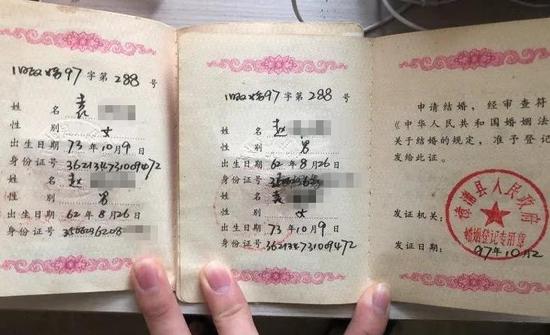 97字第288号
姓名 袁
性别 女
出生日期 73年10月9日
身份证号 362134731009472
姓名 赵
性别 男
出生日期 62年8月26日
身份证号 3506236208
97字第288号
姓名 赵
性别 男
出生日期 62年8月26日
身份证号
姓名 袁
性别 女
出生日期 73年10月9日
身份证号 362134731009472
申请结婚,经审查符
《中华人民共和国婚姻法
关于结婚的规定,准予登记
发给此证。
漳浦县人民政府
婚姻登记专用章
发证机关:
发证日期: 97年10月2